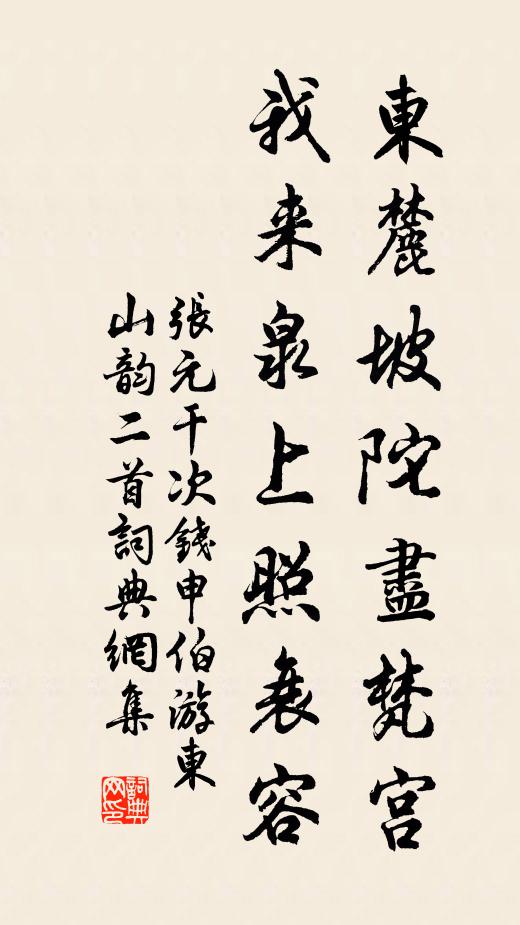 東麓坡陀盡梵宫
我来泉上照衰容
張元干次錢申伯游東
山韵二首詞典網集
詞典网印